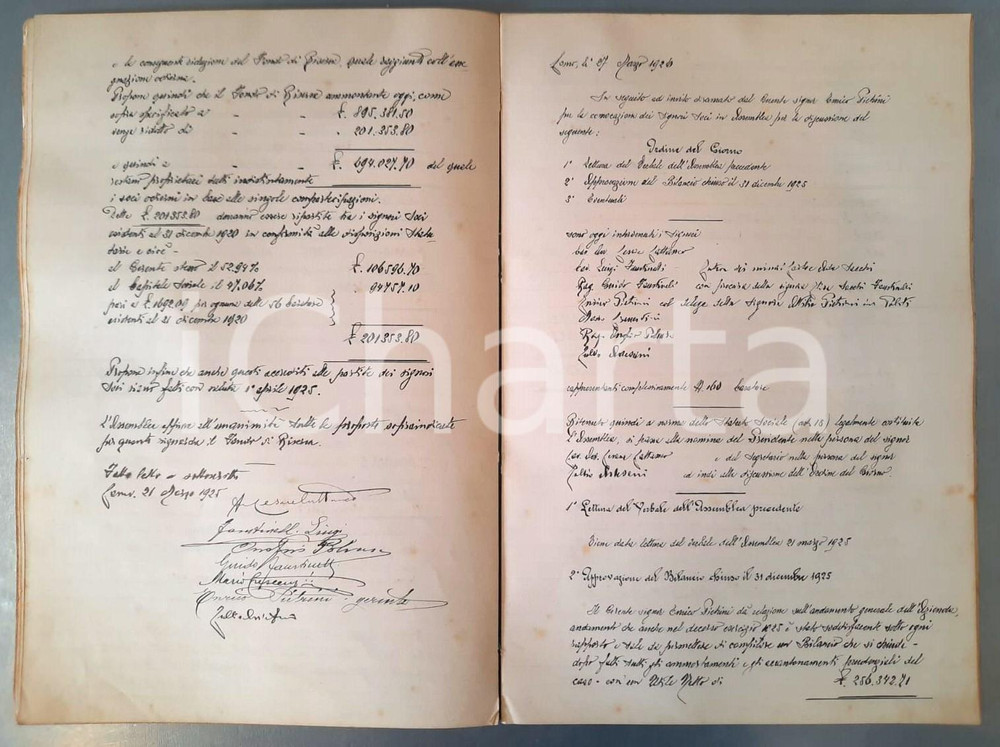 e la conseguente riduzione del Fondo di Riserva, quale
Propone quindi che il Fondo di Riserva ammontante oggi, come
sopra specificato a - - £. 895.381.50
venga ridotto di - - 201.353.80
e quindi a - - £. 694.027.70 del quale
restano proprietari tutti indistintamente
i soci odierni in base alle singole compartecipazioni.
Dette £. 201.353.80 dovranno essere ripartite tra i signori Soci
esistenti al 31 dicembre 1920 in conformità alle disposizioni Statu-
tarie e cioè:
al Gerente il 52.94% £. 106596.70
al Capitale Sociale il 47.06% 94757.10
pari a £. 1692.09 per ognuna delle 56 Carature
esistenti al 31 dicembre 1920
£ 201353.80
Propone infine che anche questi accrediti alle partite dei signori
Soci siano fatti con valuta 1° aprile 1925.
L'Assemblea approva all'unanimità tutte le proposte sopraindicate
per quanto riguarda il Fondo di Riserva.
Fatto letto e sottoscritto
Como, 21 Marzo 1925
Faustinelli Luigi
Guido Faustinelli
Mario
Enrico Pietrini gerente
Como, li 27 Marzo 1926
In seguito ad invito diramato dal Gerente signor Enrico Pietrini
per la convocazione dei Signori Soci in Assemblea per la discussione del
seguente:
Ordine del Giorno
1° Lettura del Verbale dell'Assemblea precedente
2° Approvazione del Bilancio chiuso il 31 dicembre 1925
3° Eventuali
sono oggi intervenuti i Signori
Cav. Luigi Faustinelli
Rag. Guido Faustinelli con procura della signora
Enrico Pietrini con delega della Signora
Mario
Rag. Onofrio
rappresentanti complessivamente N° 160 Carature
Ritenuto quindi a norma dello Statuto Sociale (art. 18) legalmente costituita
l'Assemblea, si passa alla nomina del Presidente nella persona del signor
e del Segretario nella persona del signor
e indi alla discussione dell'Ordine del Giorno.
1° Lettura del Verbale dell'Assemblea precedente
Viene data lettura del verbale dell'Assemblea 21 marzo 1925
2° Approvazione del Bilancio chiuso il 31 dicembre 1925
Il Gerente signor Enrico Pietrini dà relazione sull'andamento generale dell'Azienda,
andamento che anche nel decorso esercizio 1925 è stato soddisfacente sotto ogni
rapporto e tale da permettere di compilare un Bilancio che si chiude -
dopo fatti tutti gli ammortamenti e gli accantonamenti prudenziali del
caso - con un Utile Netto di £. 256.342.71
iCharta